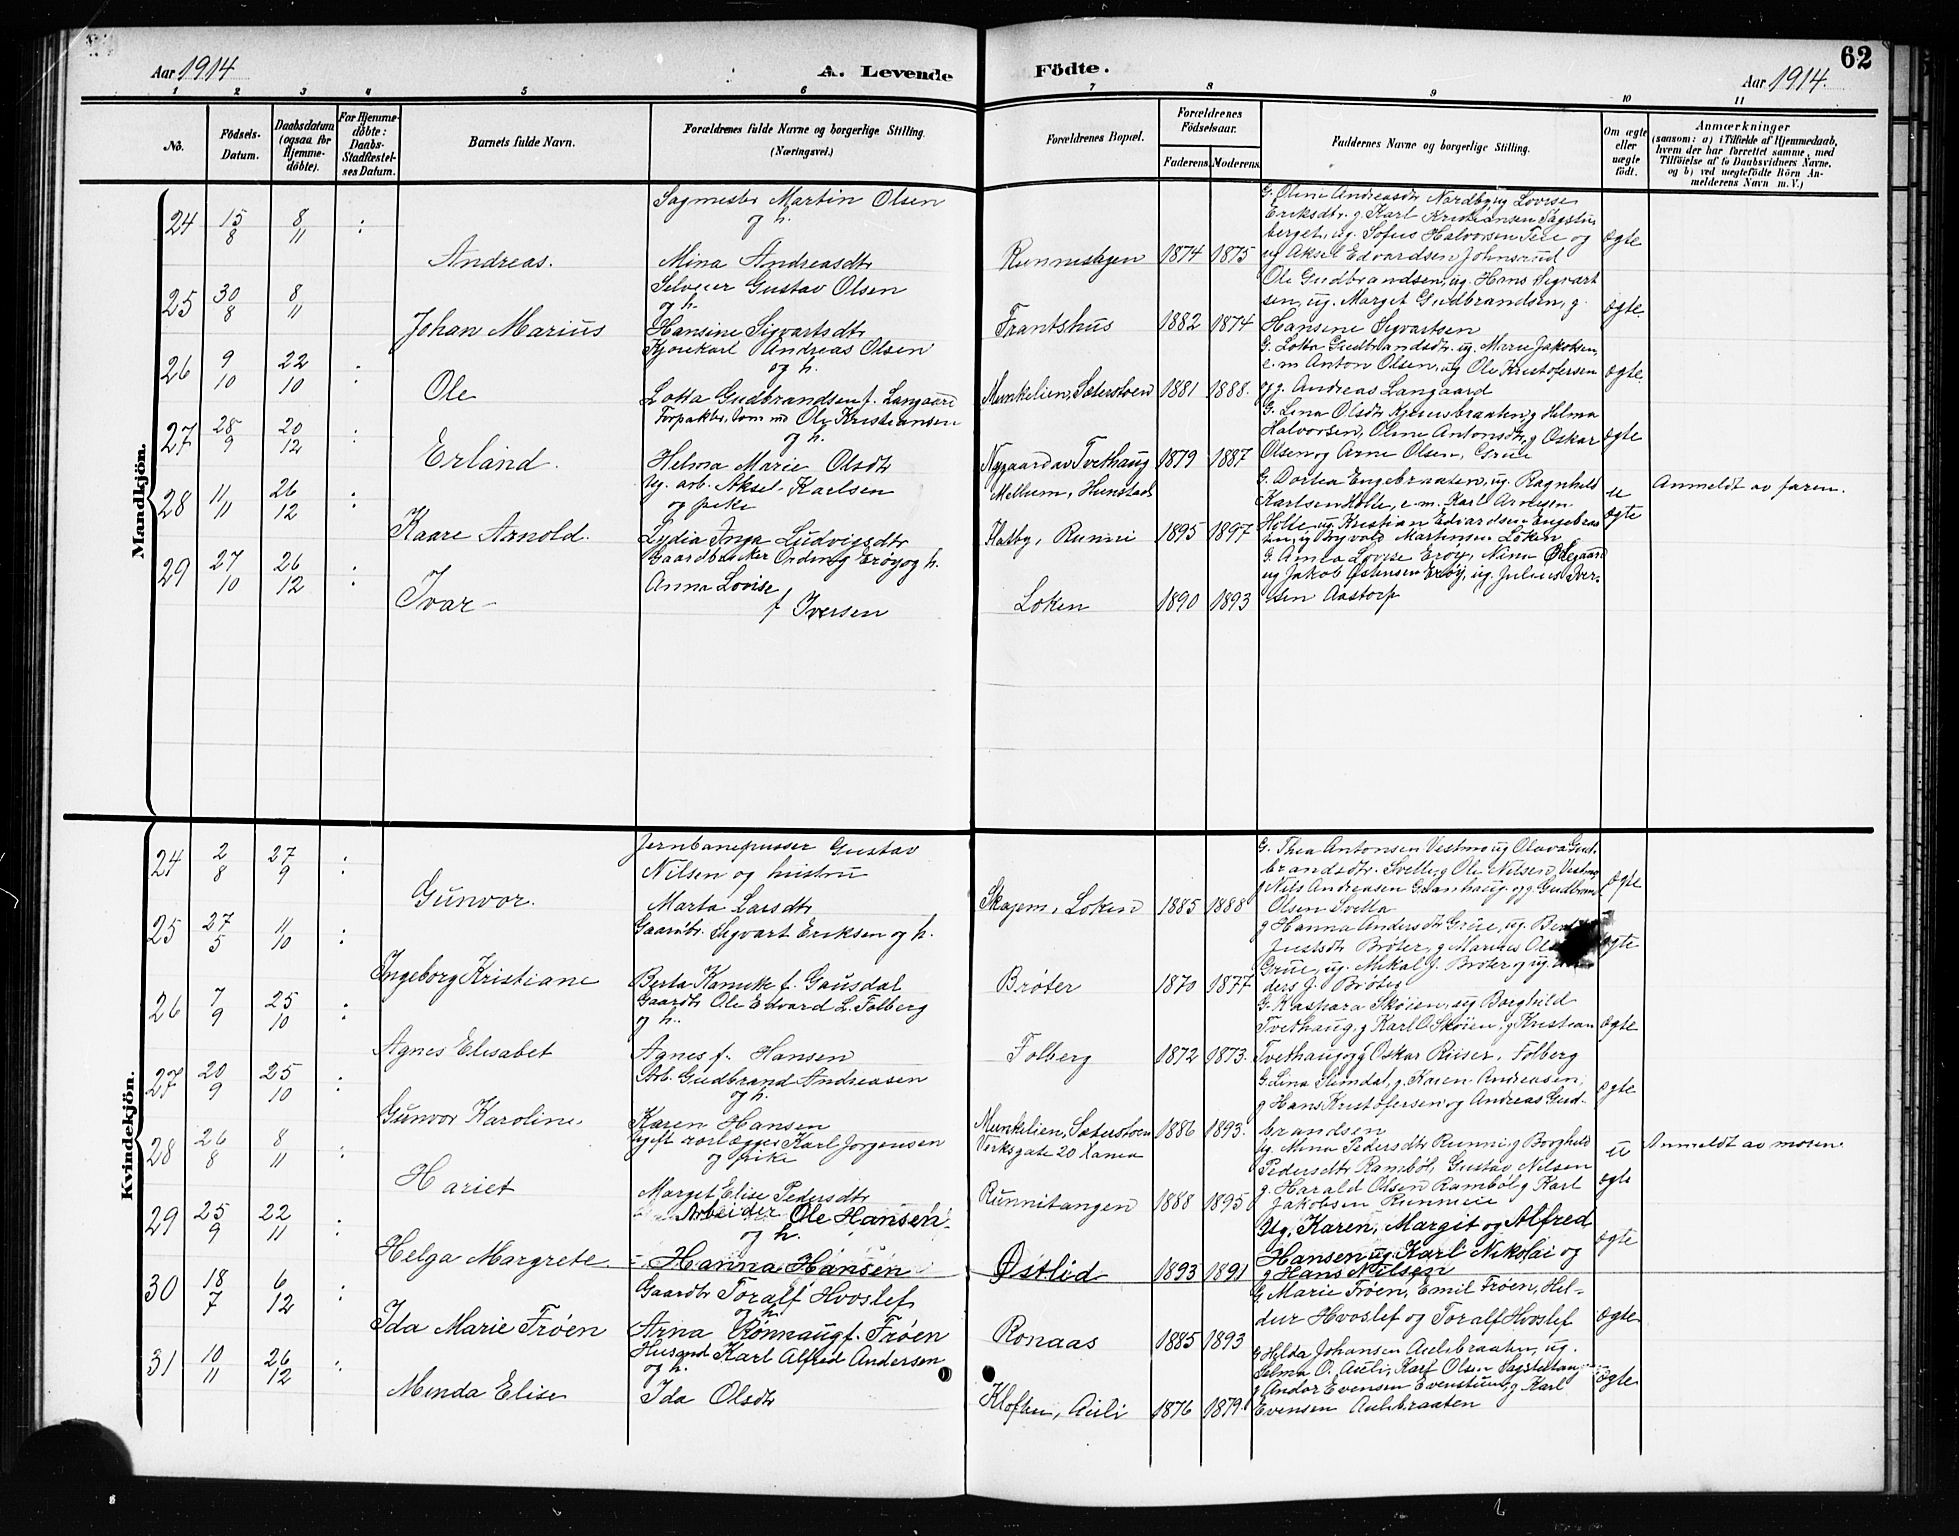 62
Aar 1914
A. Levende Födte.
Aar 1914.
1 2 3 4 5 6 7 8 9 10 11
No.
Födsels-Datum.
Daabsdatum (ogsaa for Hjemme-döbte).
For Hjemme-döbte: Daabs-Stadfæstel-ses Datum.
Barnets fulde Navn.
Forældrenes fulde Navne og borgerlige Stilling.
(Næringsvei.)
Forældrenes Bopæl.
Forældrenes Födselsaar.
Faderens. Moderens.
Faddernes Navne og borgerlige Stilling.
Om ægte eller uægte födt.
Anmærkninger
(saasom: a) i Tilfælde af Hjemmedaab,
hvem der har forrettet samme, med
Tilföielse af to Daabsvidners Navne,
og b) ved uægtefödte Börn An-
melderens Navn m. V.)
Mandkjön.
24 15/8 8/11 :
Andreas.
Sagmester Martin Olsen
og h.
Mina Andreasdtr
1874 1875
G. Oline Andreasdtr Nordby ug Lovise
Eriksdtr. g. Karl Kristiansen Sagstu-
berget, ug. Sofus Halvorsen Teie og
ug Aksel Edvardsen Johnsrud
ægte
25 30/8 8/11
Johan Marius
Selveier Gustav Olsen
og h.
Hansine Sigvartsdtr
Frantshus 1882 1874
Ole Gudbrandsen, ug. Hans Sigvart
sen, ug. Marget Gudbrandsen, g.
Hansine Sigvartsen
ægte.
26 9/10 22/10 :
Ole
Kjørekarl Andreas Olsen
og h.
Lotta Gudbrandsen f. Langaard
Munkelien, Sæterstøen 1881 1888.
G. Lotta Gudbrandsdtr. ug. Marie Jakobsen,
e.m Anton Olsen, ug Ole Kristofersen
og g. Andreas Langaard
ægte.
27 28/9 20/12 :
Erland.
Ole Kristiansen
og h.
Helma Marie Olsdtr
Nygaard av Tvethaug 1879 1887
G. Lina Olsdtr
Halvorsen, Oline Antonsdtr, g Oskar
Olsen og Arne Olsen, Grue
ægte
28 11/11 26/12 :
Kaare Arnold.
Ug. arb. Aksel Karlsen
og pike
Lydia Inga Ludvigsdtr
Mellum, Hunstad
Halby, Runni 1895 1897
G. Dortea Engebraaten, ug. Ragnhild
Karlsen Holte, e.m. Karl Arnesen
Holte, ug. Kristian Edvardsen Engebraa
ten, g Martinsen Løken
u
ægte
Anmeldt av faren.
29 27/10 26/12 :
Ivar
Erøy og h.
Anna Lovise
f Iversen
Løken 1890 1893
G. Anna Lovise Erøy, Nina Ødegaard
ug Jakob Østensen Erøy, ug. Julius Iver-
sen Aastorp
Kvindekjön.
24 2/8 27/9 :
Gunvor.
Jernbanepusser Gustav
Nilsen og hustru
Marta Larsdtr
Skajem, Løken 1885 1888
G. Thea Antonsen Vestmo ug Olava Gud-
brandsdtr. Svelle, g Ole Nilsen, Vestmo
g Nils Andreasen Granhaug og g Gudbrand
Olsen Svella
ægte
25 27/5 11/10 :
Ingeborg Kristiane
Gaardbr. Sigvart Eriksen og h.
Berta Kamilla f. Gausdal
Brøter 1870 1877
g Hanna Andersdtr Grue, ug.
Justsdtr Brøter, g Marius
Grue, ug. Mikal J. Brøter og ug.
ders J. Brøter
ægte
26 7/9 25/10 :
Agnes Elisabet
Gaardbr Ole Edvard L. Folberg
og h.
Agnes f. Hansen
Folberg 1872 1873.
G. Kaspara Skøien, ug Borghild
Tvethaug, g Karl O. Skøien, g Kristian
Tvethaug og g Oskar Ruser, Folberg
ægte
27 20/9 25/10 :
Gunvor Karoline.
Arb. Gudbrand Andreasen
og h.
Karen Hansen
Munkelien, Sæterstøen 1886 1893.
G. Lina Slimdal, g. Karen Andreasen,
g Hans Kristofersen og Andreas Gud-
brandsen
ægte
28 26/8 8/11 :
Hariet
Ugift rørlægger Karl Jørgensen
og pike
Marget Elise Pedersdtr
Verksgate 20
Runnitangen 1888 1895
ug. Mina Pedersdtr Runni, g Borghild
Pedersdtr Rambøl, Gustav Nilsen
g. Harald Olsen Rambøl g Karl
Jakobsen Runnieie
u
ægte
Anmeldt av moren.
29 25/9 22/11 :
Helga Margrete
Arbeider Ole Hansen
og h.
Hanna Hansen
Østlid 1893 1891
Ug. Karen, Margit og Alfred
Hansen ug. Karl Nikolai og
g Hans Nilsen
ægte
30 18/7 6/12 :
Ida Marie Frøen
Gaardbr Toralf Hvoslef
og h.
Arna Rønnaug f. Frøen
Ronaas 1885 1893
G. Marie Frøen, Emil Frøen, Hel-
dur Hvoslef og Toralf Hvoslef
ægte
31 10/11 26/12 :
Menda Elise
Husmd Karl Alfred Andersen
og h.
Ida Olsdtr
Kloften, Auli 1876 1879.
g Helda Johansen Aulibraaten, ug.
Selma O. Auli, Karl Olsen Sagstutan
g Andor Evensen Evenstun, g Karl
Evensen Aulibraaten
ægte